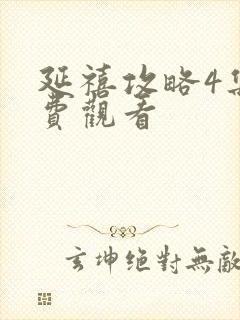 延禧攻略4集
費觀看
玄坤絕對無敵